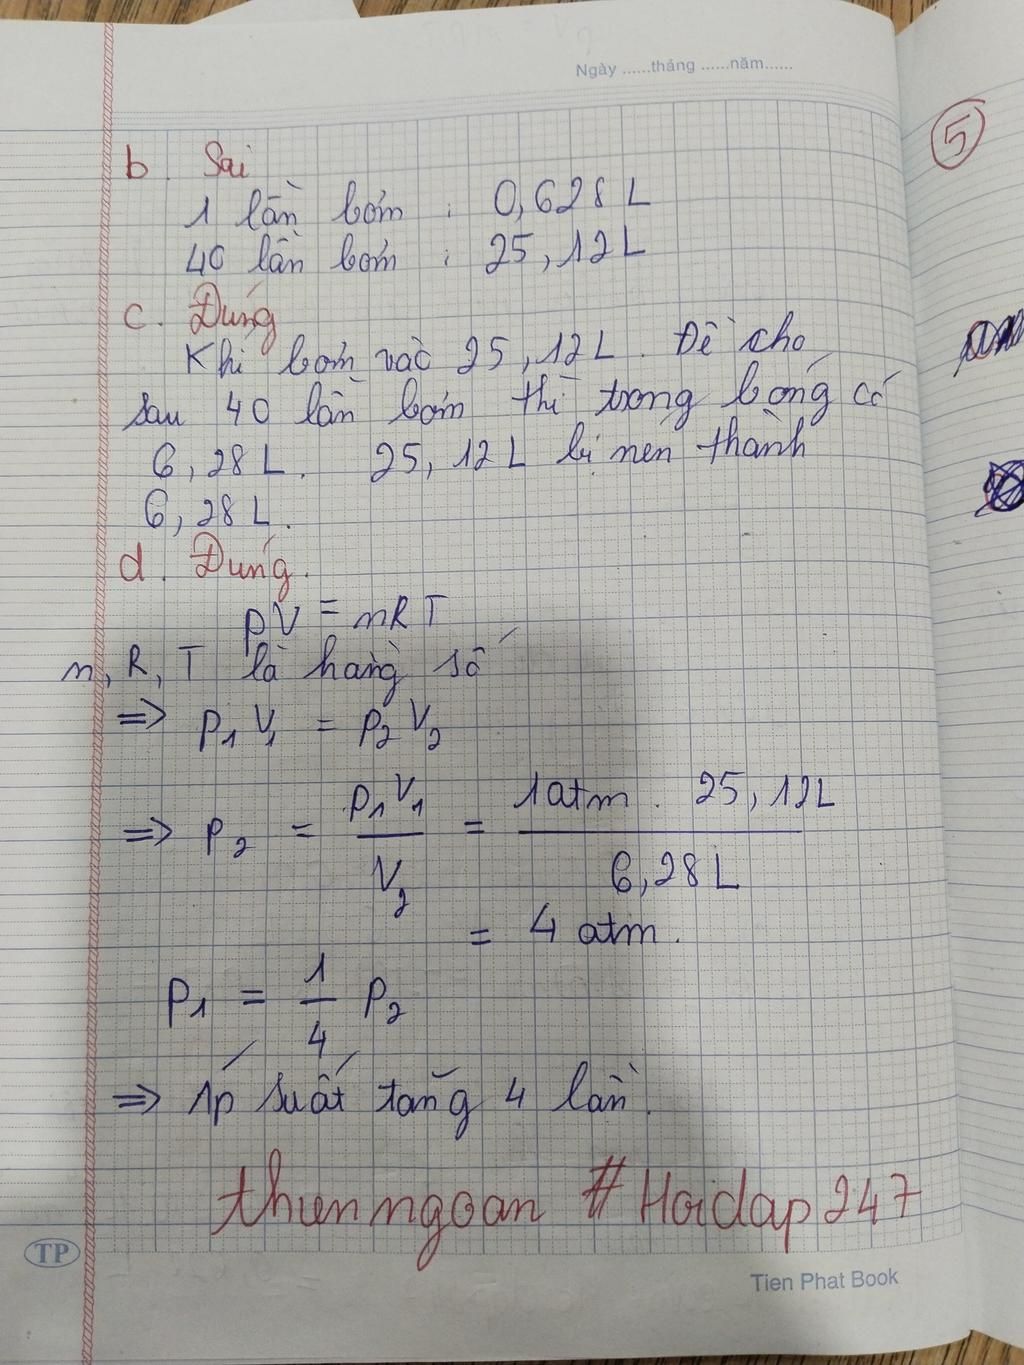 Ngày ......tháng ......năm......
5
b. Sai
1 lần bơm : 0,628 L
40 lần bơm : 25,12 L
c. Đúng
Khí bơm vào 25,12 L. Đề cho
sau 40 lần bơm thì trong bóng có
6,28 L. 25,12 L bị nén thành
6,28 L.
d. Đúng.
pV = nRT
n, R, T là hằng số
=> p₁V₁ = p₂V₂
=> p₂ = p₁V₁ / V₂ = 1atm . 25,12L / 6,28L
= 4 atm.
p₁ = 1/4 p₂
=> Áp suất tăng 4 lần.
thienngoan # Hoidap247
TP
Tien Phat Book